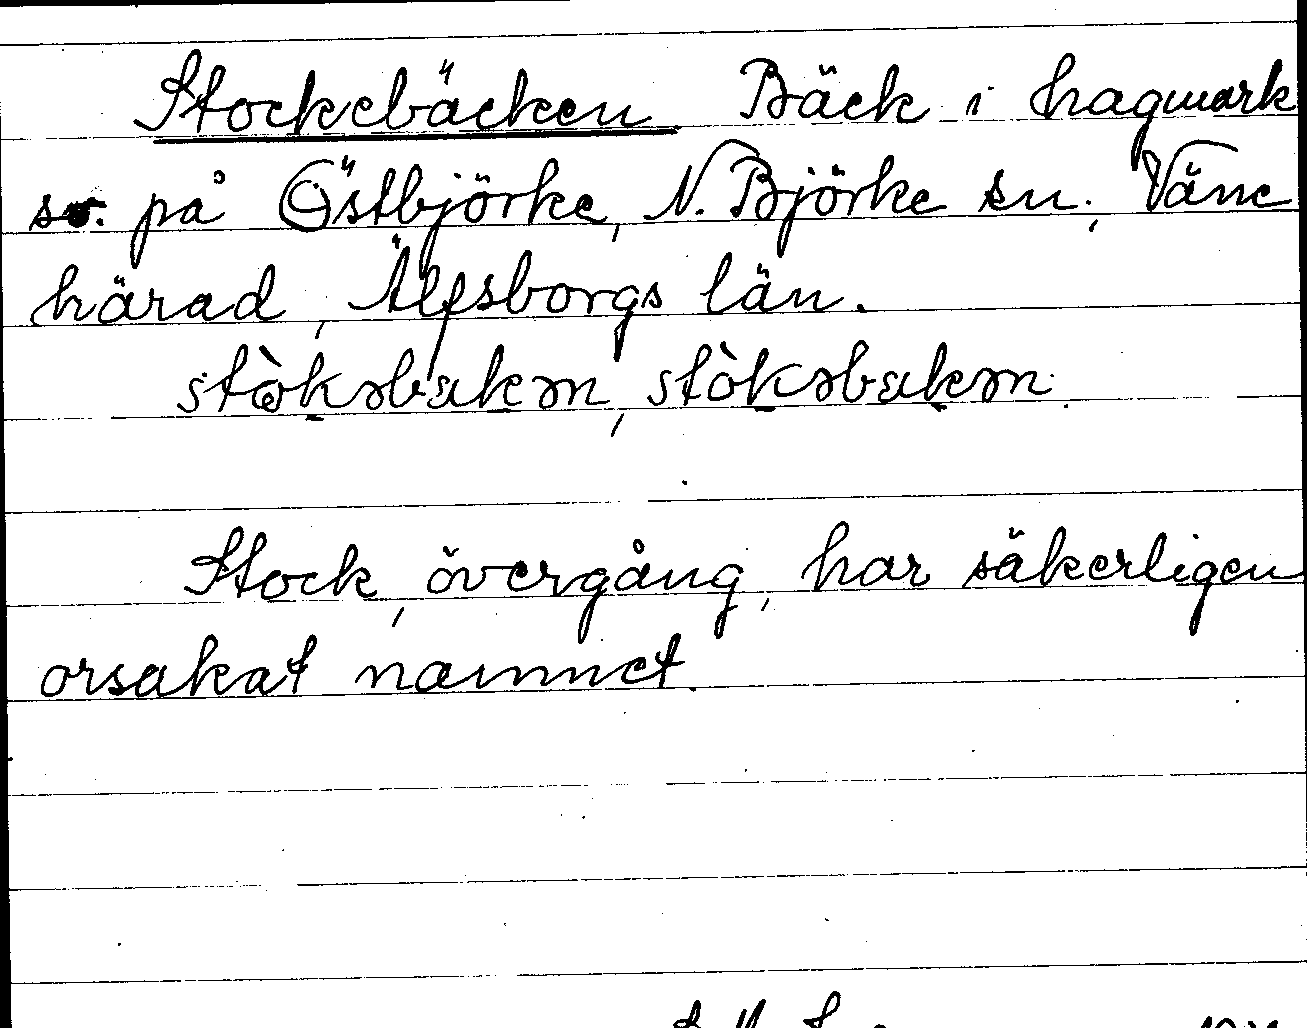 Stockebäcken. Bäck i hagmark
so. på Östbjörke, N. Björke sn., Väne
härad, Älfsborgs län.
Stock, övergång, har säkerligen
orsakat namnet.